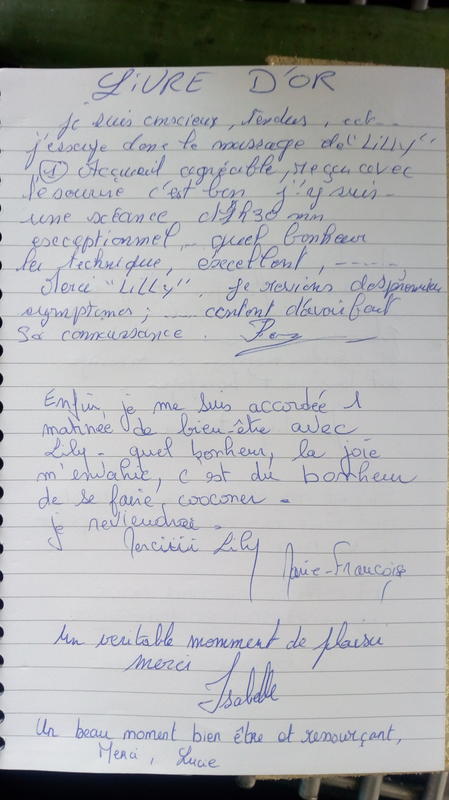 LIVRE D'OR
Je suis anscieux, tendus, ect...
j'essaye donc le massage de "LiLLY"
① Accueil agréable, reçu avec
le sourire c'est bon j'y suis-
une séance d'1h30 mn
execeptionnel... quel bonheur
la technique, execellent, ------
Merci "LiLLY". Je reviens des premier
symptimes; ..... content d'avoir fait
sa connaissance.
Enfin, je me suis accordée 1
matinée de bien-être avec
Lily- quel bonheur, la joie
m'envahie, c'est du bonheur
de se faire cocooner.
je reviendrai.
Merciiii Lily
Marie-Françoise
Un veritable momment de plaisir
merci
Isabelle
Un beau moment bien être et ressourçant,
Merci, Lucie